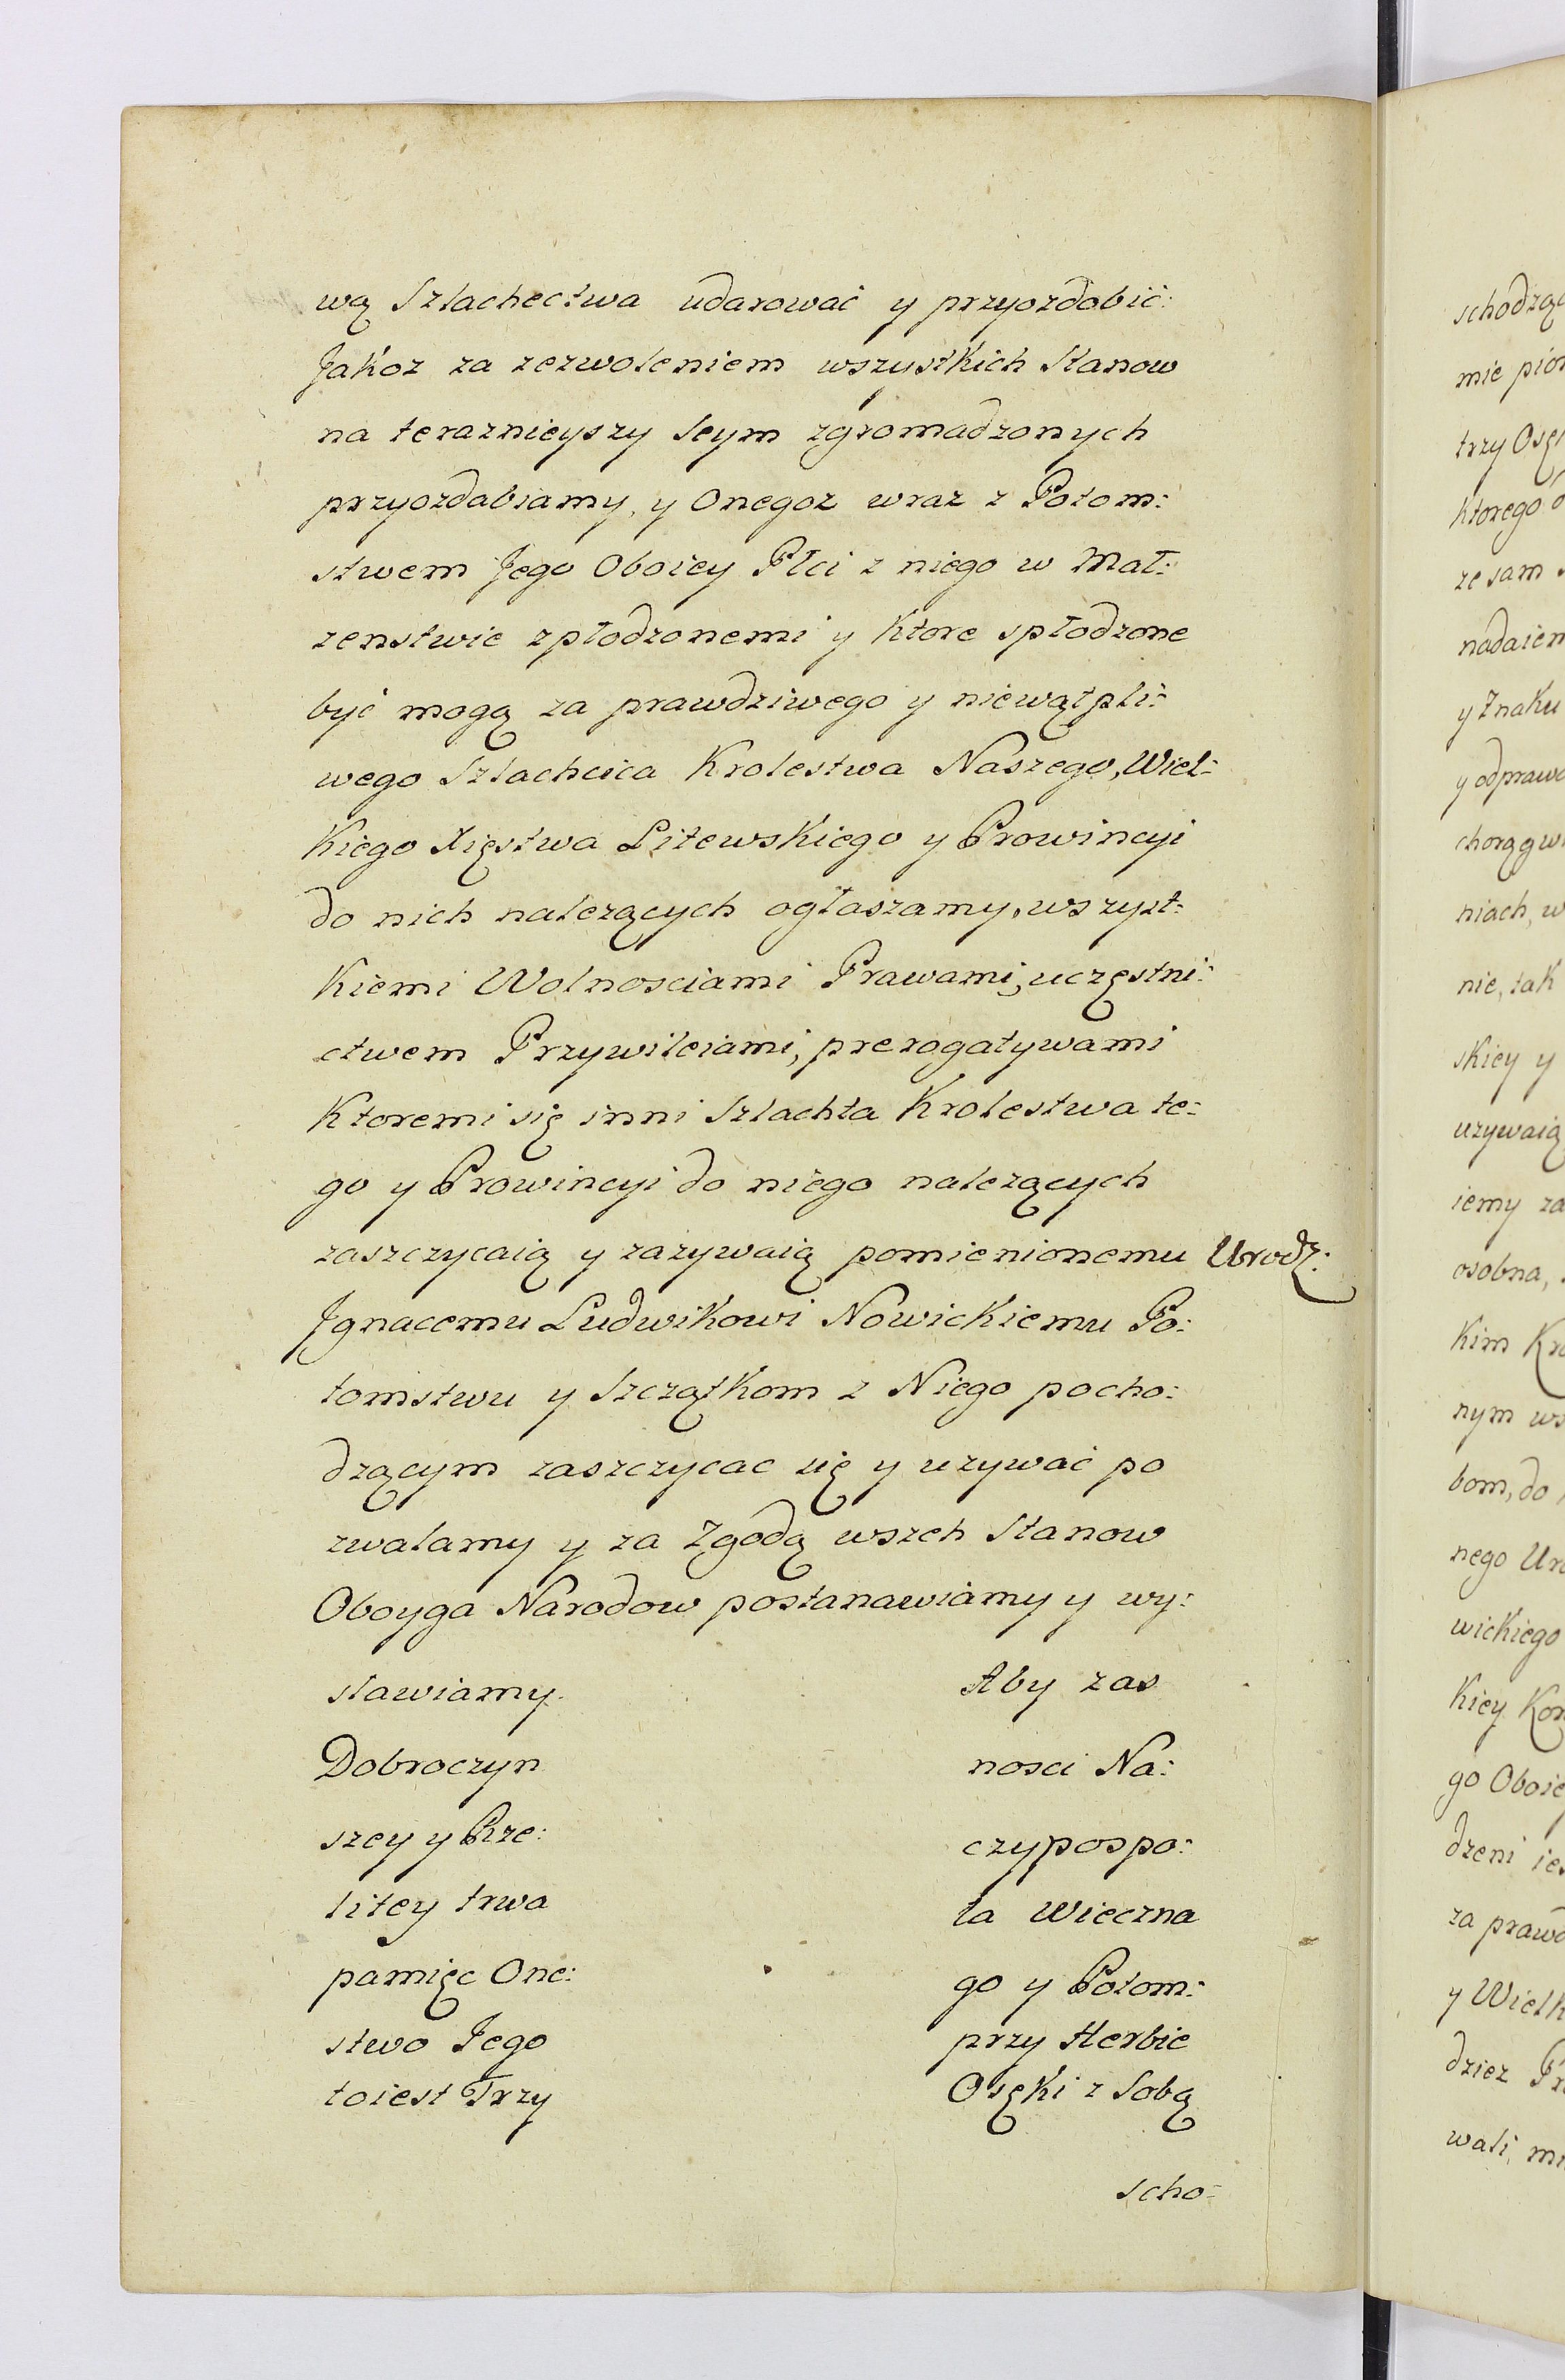 wą Szlachectwa udarować y przyozdobić:
Jakoz za zezwoleniem wszystkich Stanow
na teraznieyszy Seym zgromadzonych
przyozdabiamy, y Onegoz wraz z Potom:
stwem Jego Oboiey Płci z niego w Mał:
zenstwie zpłodzonemi y ktore spłodzone
być mogą za prawdziwego y niewątpli:
wego Szlachcica Krolestwa Naszego, Wiel:
kiego Xięstwa Litewskiego y Prowincyi
do nich nalezących ogłaszamy, wszyst:
kiemi Wolnosciami Prawami, uczęstni:
ctwem Przywileiami, prerogatywami
ktoremi się inni Szlachta Krolestwa te:
go y Prowincyi do niego nalezących
zaszczycaią y zazywaią pomienionemu Urodz:
Jgnacemu Ludwikowi Nowickiemu Po:
tomstwu y Szczątkom z Niego pocho:
dzącym zaszczycac się y uzywać po
zwalamy y za Zgodą wszeh Stanow
Oboyga Narodow postanawiamy y wy:
stawiamy. Aby zas
Dobroczyn nosci Na:
szey y Rze: czypospo:
litey trwa ła Wieczna
pamięc One: go y Potom:
stwo Jego przy Herbie
toiest Trzy Osęki z Sobą
scho:
schodząc
mie piór
trzy Osę
ktorego
ze sam
nadaiem
y Znaku
y odprawo
chorągwi
niach, w
nie, tak
skiey y
uzywaią
iemy za
osobna,
kim Kro
nym ws
bom, do
nego Uro
wickiego
kiey Kor
go Oboie
dzeni ies
za prawd
y Wielk
dziez Pr
wali, mi